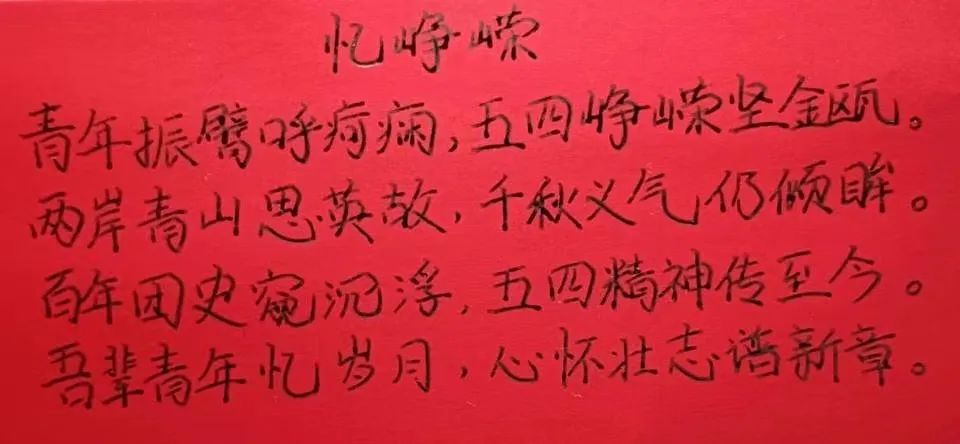 忆峥嵘
青年振臂呼疴瘸,五四峥嵘坚金瓯。
两岸青山思英故,千秋义气仍倾眸。
百年团史窥沉浮,五四精神传至今。
吾辈青年忆岁月,心怀壮志谱新章。